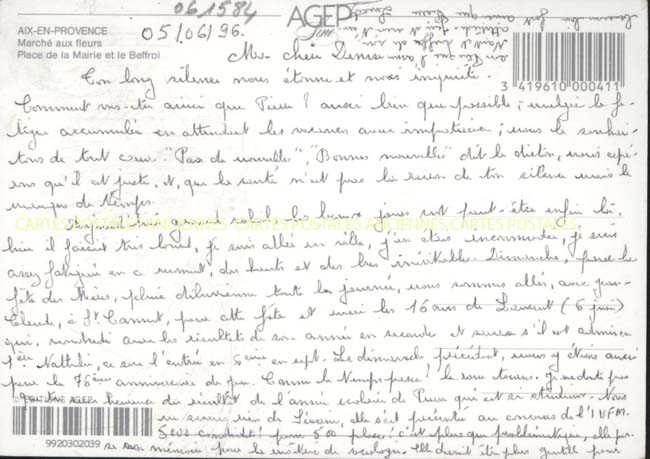 061584
AIX-EN-PROVENCE
Marché aux fleurs
Place de la Mairie et le Beffroi
05/06/96.
AGEP
3 419610 000411
Ma chère Denise
Ton long silence nous étonne et nous inquiète.
Comment vas-tu ainsi que Pierre ? aussi bien que possible, malgré la fa-
tigue accumulée en attendant les vacances avec impatience ; nous le souhai-
tons de tout cœur. "Pas de nouvelle", "Bonnes nouvelles" dit le dicton, nous espé-
rons qu'il est juste, et, que la santé n'est pas la raison de ton silence mais le
manque de temps.
Aujourd'hui grand soleil, les beaux jours sont peut-être enfin là,
hier il faisait très lourd, je suis allée en ville, j'en étais incommodée, je suis
assez fatiguée en ce moment, des hauts et des bas inévitables. Dimanche, pour la
fête des Mères, pluie diluvienne toute la journée, nous sommes allés, avec Jean-
Claude, à St Cannat, pour cette fête et aussi les 16 ans de Laurent (6 juin)
qui, vendredi aura les résultats de son année en seconde et saura s'il est admis en
1ère Nathalie, ce sera l'entrée en 5ème en sept. Le dimanche précédent, nous y étions aussi
pour le 76ème anniversaire de
Comme le temps passe !
Je ne doute pas
que tu seras heureuse du résultat de l'année scolaire de Pierre qui est si studieux. Nous
ne savons rien de
elle s'est présentée au concours de l'IUFM.
5000 candidats pour 500 places ! c'est plus que problématique, elle
se son mémoire pour la maîtrise de sociologie. Elle devait être plus gentille pour
EDITIONS AGEP
9920302039
CARTES POSTALES ANCIENNES CARTES POSTALES ANCIENNES CARTES POSTALES